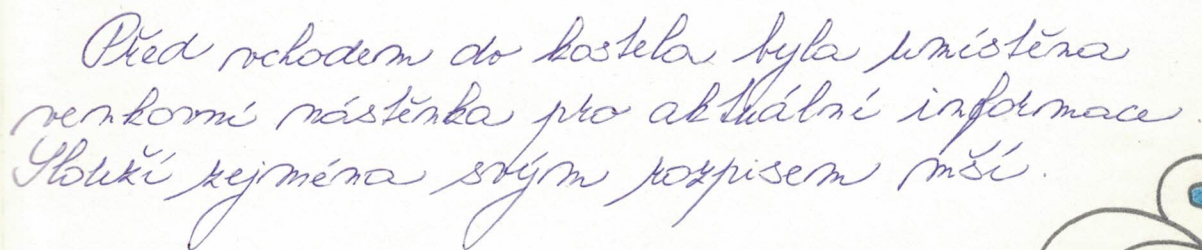 Před vchodem do kostela byla umístěna
venkovní nástěnka pro aktuální informace.
Slouží zejména svým rozpisem mší.